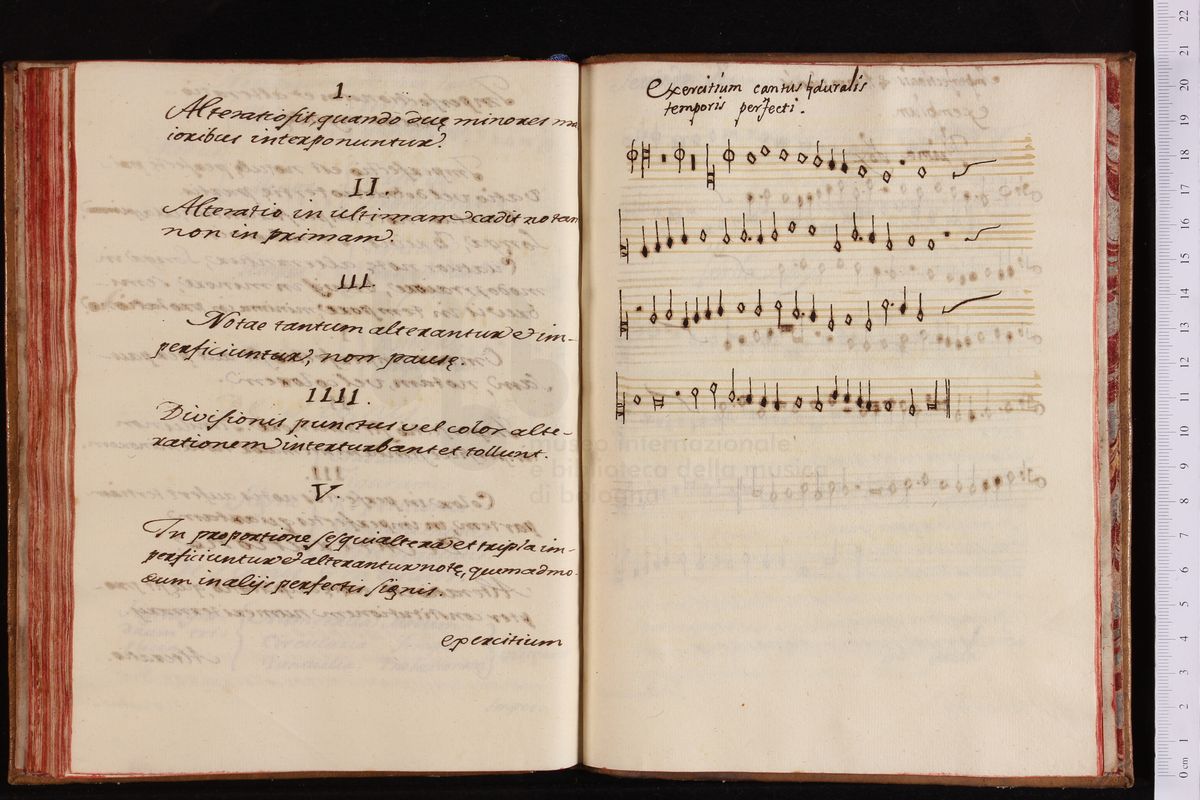 1.
Alteratio fit, quando duę minores ma
ioribus interponuntur.
II.
Alteratio in ultimam cadit notam
non in primam.
III.
Notae tantum alterantur & im-
perficiuntur, non pausę.
IIII.
Divisionis punctus vel color alte-
rationem interturbant et tollunt.
V.
In proportione sesquialtera et tripla im-
perficiuntur & alterantur notę, quemadmo-
dum in alijs perfectis signis.
exercitium
exercitium cantus ♮duralis
temporis perfecti.
museo internazionale
e biblioteca della musica
di bologna
0 cm 1 2 3 4 5 6 7 8 9 10 11 12 13 14 15 16 17 18 19 20 21 22